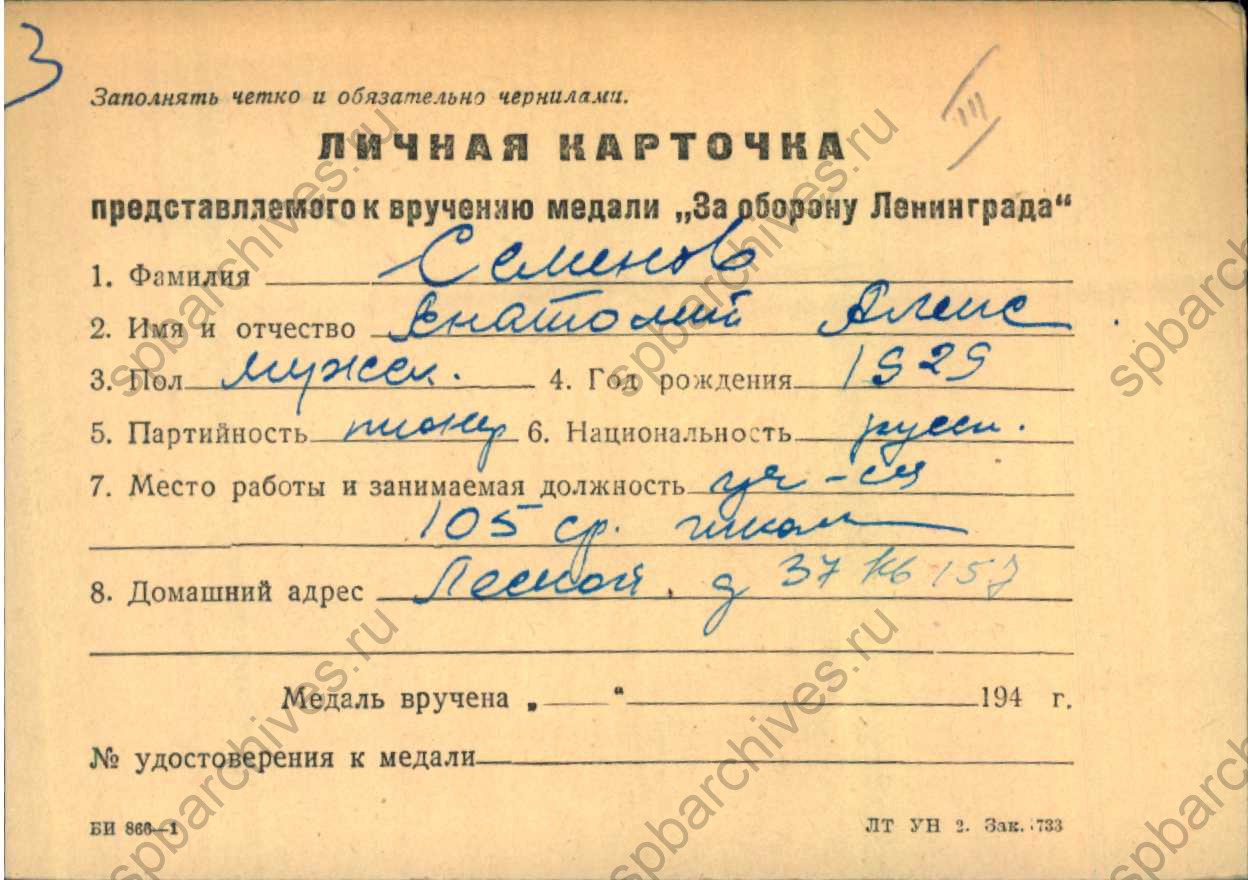 3
Заполнять четко и обязательно чернилами.
III
ЛИЧНАЯ КАРТОЧКА
представляемого к вручению медали „За оборону Ленинграда“
1. Фамилия Семенов
2. Имя и отчество Анатолий Алекс
3. Пол мужск. 4. Год рождения 1929
5. Партийность пионер 6. Национальность русск.
7. Место работы и занимаемая должность уч-ся
105 ср. школ
8. Домашний адрес Лесной, д 37 кв 157
Медаль вручена „ “ 194 г.
№ удостоверения к медали
БИ 866—1 ЛТ УН 2. Зак. 733
spbarchives.ru
spbarchives.ru
spbarc
spbarchives.ru
spbarchives.ru
spbarc